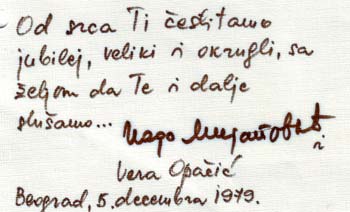 Od srca Ti čestitamo
jubilej, veliki i okrugli, sa
željom da Te i dalje
slušamo...
i
Vera Opačić
Beograd, 5. decembra 1979.